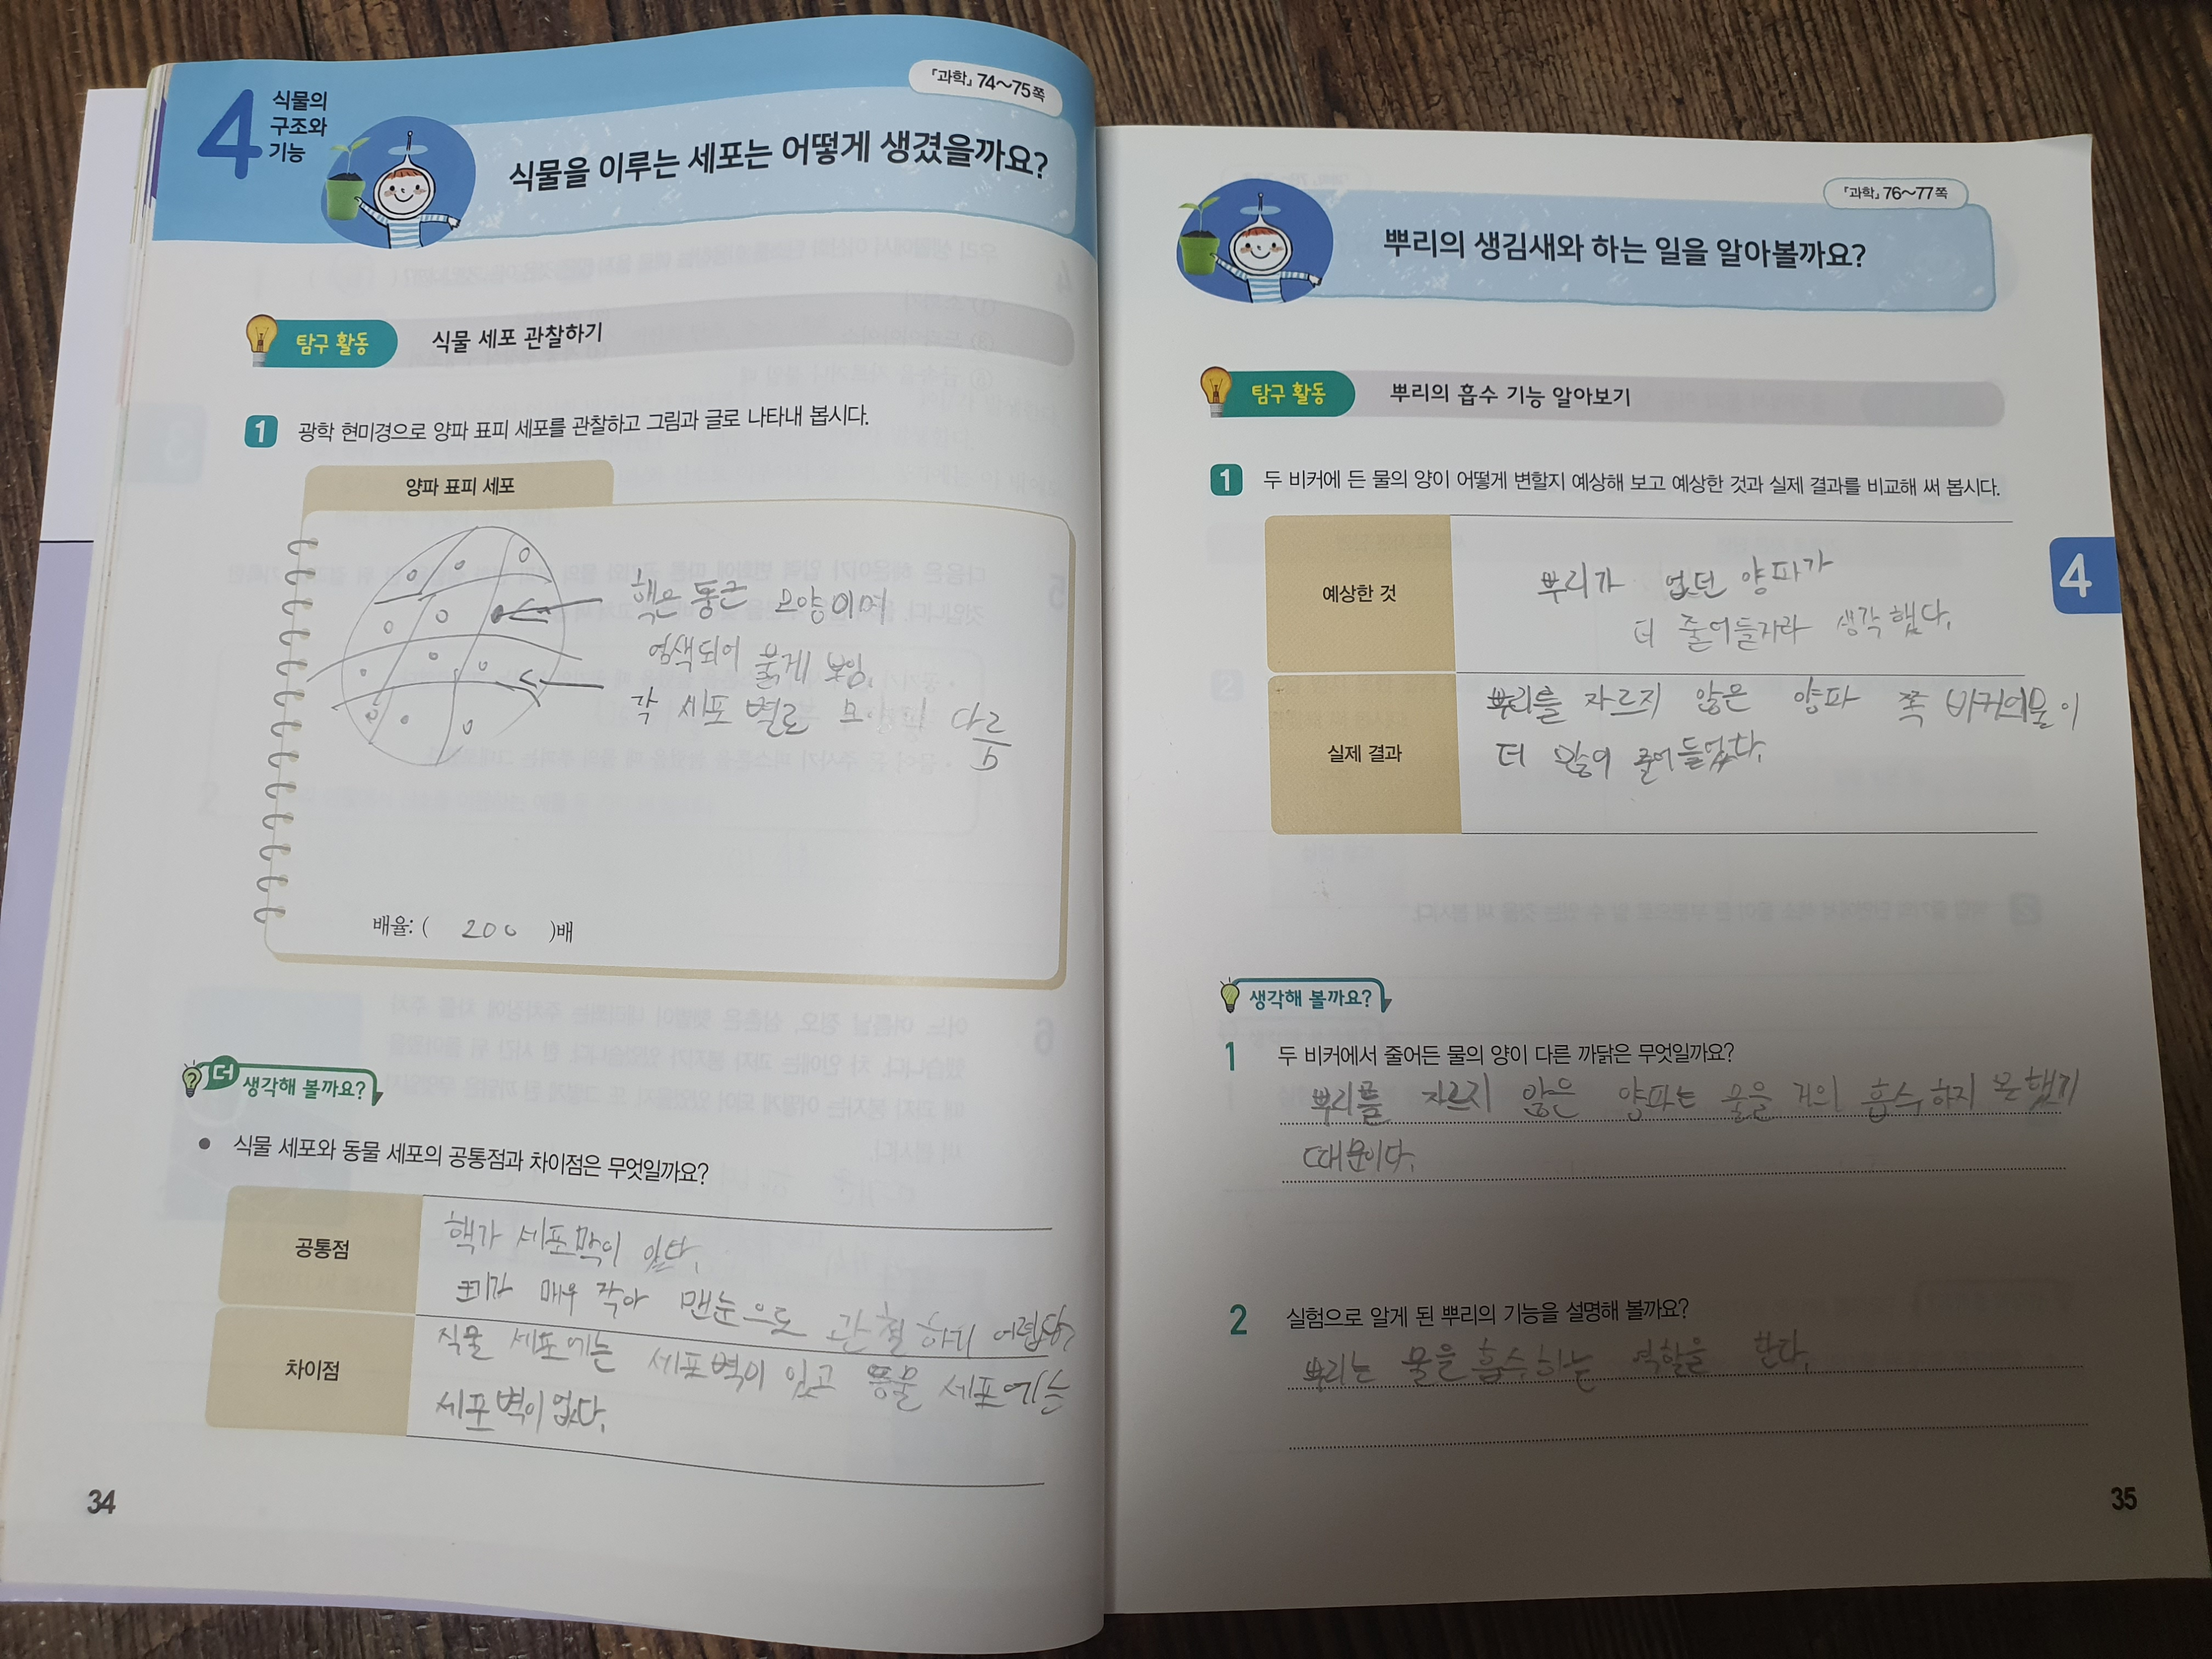 4 식물의
구조와
기능
『과학』 74~75쪽
식물을 이루는 세포는 어떻게 생겼을까요?
탐구 활동 식물 세포 관찰하기
1 광학 현미경으로 양파 표피 세포를 관찰하고 그림과 글로 나타내 봅시다.
양파 표피 세포
핵은 둥근 모양이며
염색되어 붉게 보임.
각 세포 별로 모양이 다름
배율: ( 200 )배
더 생각해 볼까요?
● 식물 세포와 동물 세포의 공통점과 차이점은 무엇일까요?
공통점
핵가 세포막이 있다.
크기가 매우 작아 맨눈으로 관찰하기 어렵다.
차이점
식물 세포에는 세포벽이 있고 동물 세포에는
세포벽이 없다.
34
『과학』 76~77쪽
뿌리의 생김새와 하는 일을 알아볼까요?
탐구 활동 뿌리의 흡수 기능 알아보기
1 두 비커에 든 물의 양이 어떻게 변할지 예상해 보고 예상한 것과 실제 결과를 비교해 써 봅시다.
4
예상한 것
뿌리가 없던 양파가
더 줄어들지라 생각했다.
실제 결과
뿌리를 자르지 않은 양파 쪽 비커의물이
더 많이 줄어들었다.
생각해 볼까요?
1 두 비커에서 줄어든 물의 양이 다른 까닭은 무엇일까요?
뿌리를 자르지 않은 양파는 물을 거의 흡수하지 못했기
때문이다.
2 실험으로 알게 된 뿌리의 기능을 설명해 볼까요?
뿌리는 물을 흡수하는 역할을 한다.
35